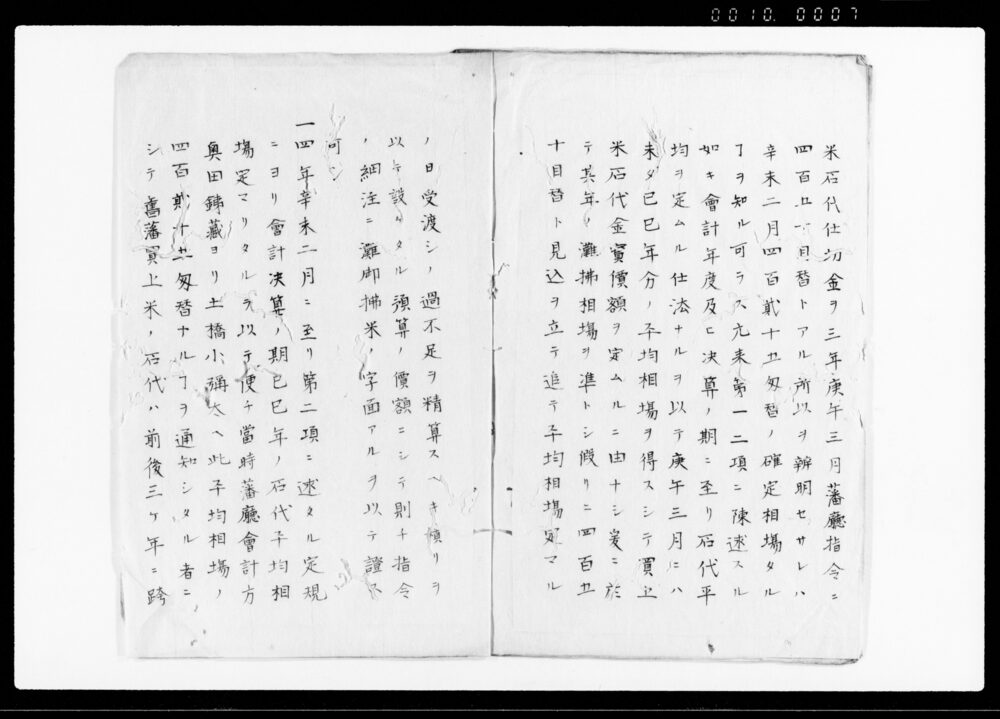 0010. 0007
米石代仕切金ヲ三年庚午三月藩廳指令ニ
四百廿五匁目替トアル所以ヲ辨明セサレハ
辛未二月四百貳十五匁替ノ確定相場タル
ヿヲ知ル可ラス元来第一二項ニ陳述スル
如キ會計年度及ヒ决算ノ期ニ至リ石代平
均ヲ定ムル仕法ナルヲ以テ庚午三月ニハ
未タ已巳年分ノ平均相場ヲ得スシテ買上
米石代金實價額ヲ定ムルニ由ナシ爰ニ於
テ其年ノ灘拂相場ヲ準トシ假リニ四百廿
十目替ト見込ヲ立テ追テ平均相場定マル
ノ日受渡シノ過不足ヲ精算スヘキ積リヲ
以テ設ケタル預算ノ價額ニシテ則チ指令
ノ細注ニ灘御拂米ノ字面アルヲ以テ證ス
可シ
一四年辛未二月ニ至リ第二項ニ述タル定規
ニヨリ會計决算ノ期已巳年ノ石代平均相
場定マリタルヲ以テ便チ當時藩廳會計方
奥田銕藏ヨリ土橋小彌太ヘ此平均相場ノ
四百貳十五匁替ナルヿヲ通知シタル者ニ
シテ舊藩買上米ノ石代ハ前後三ケ年ニ跨